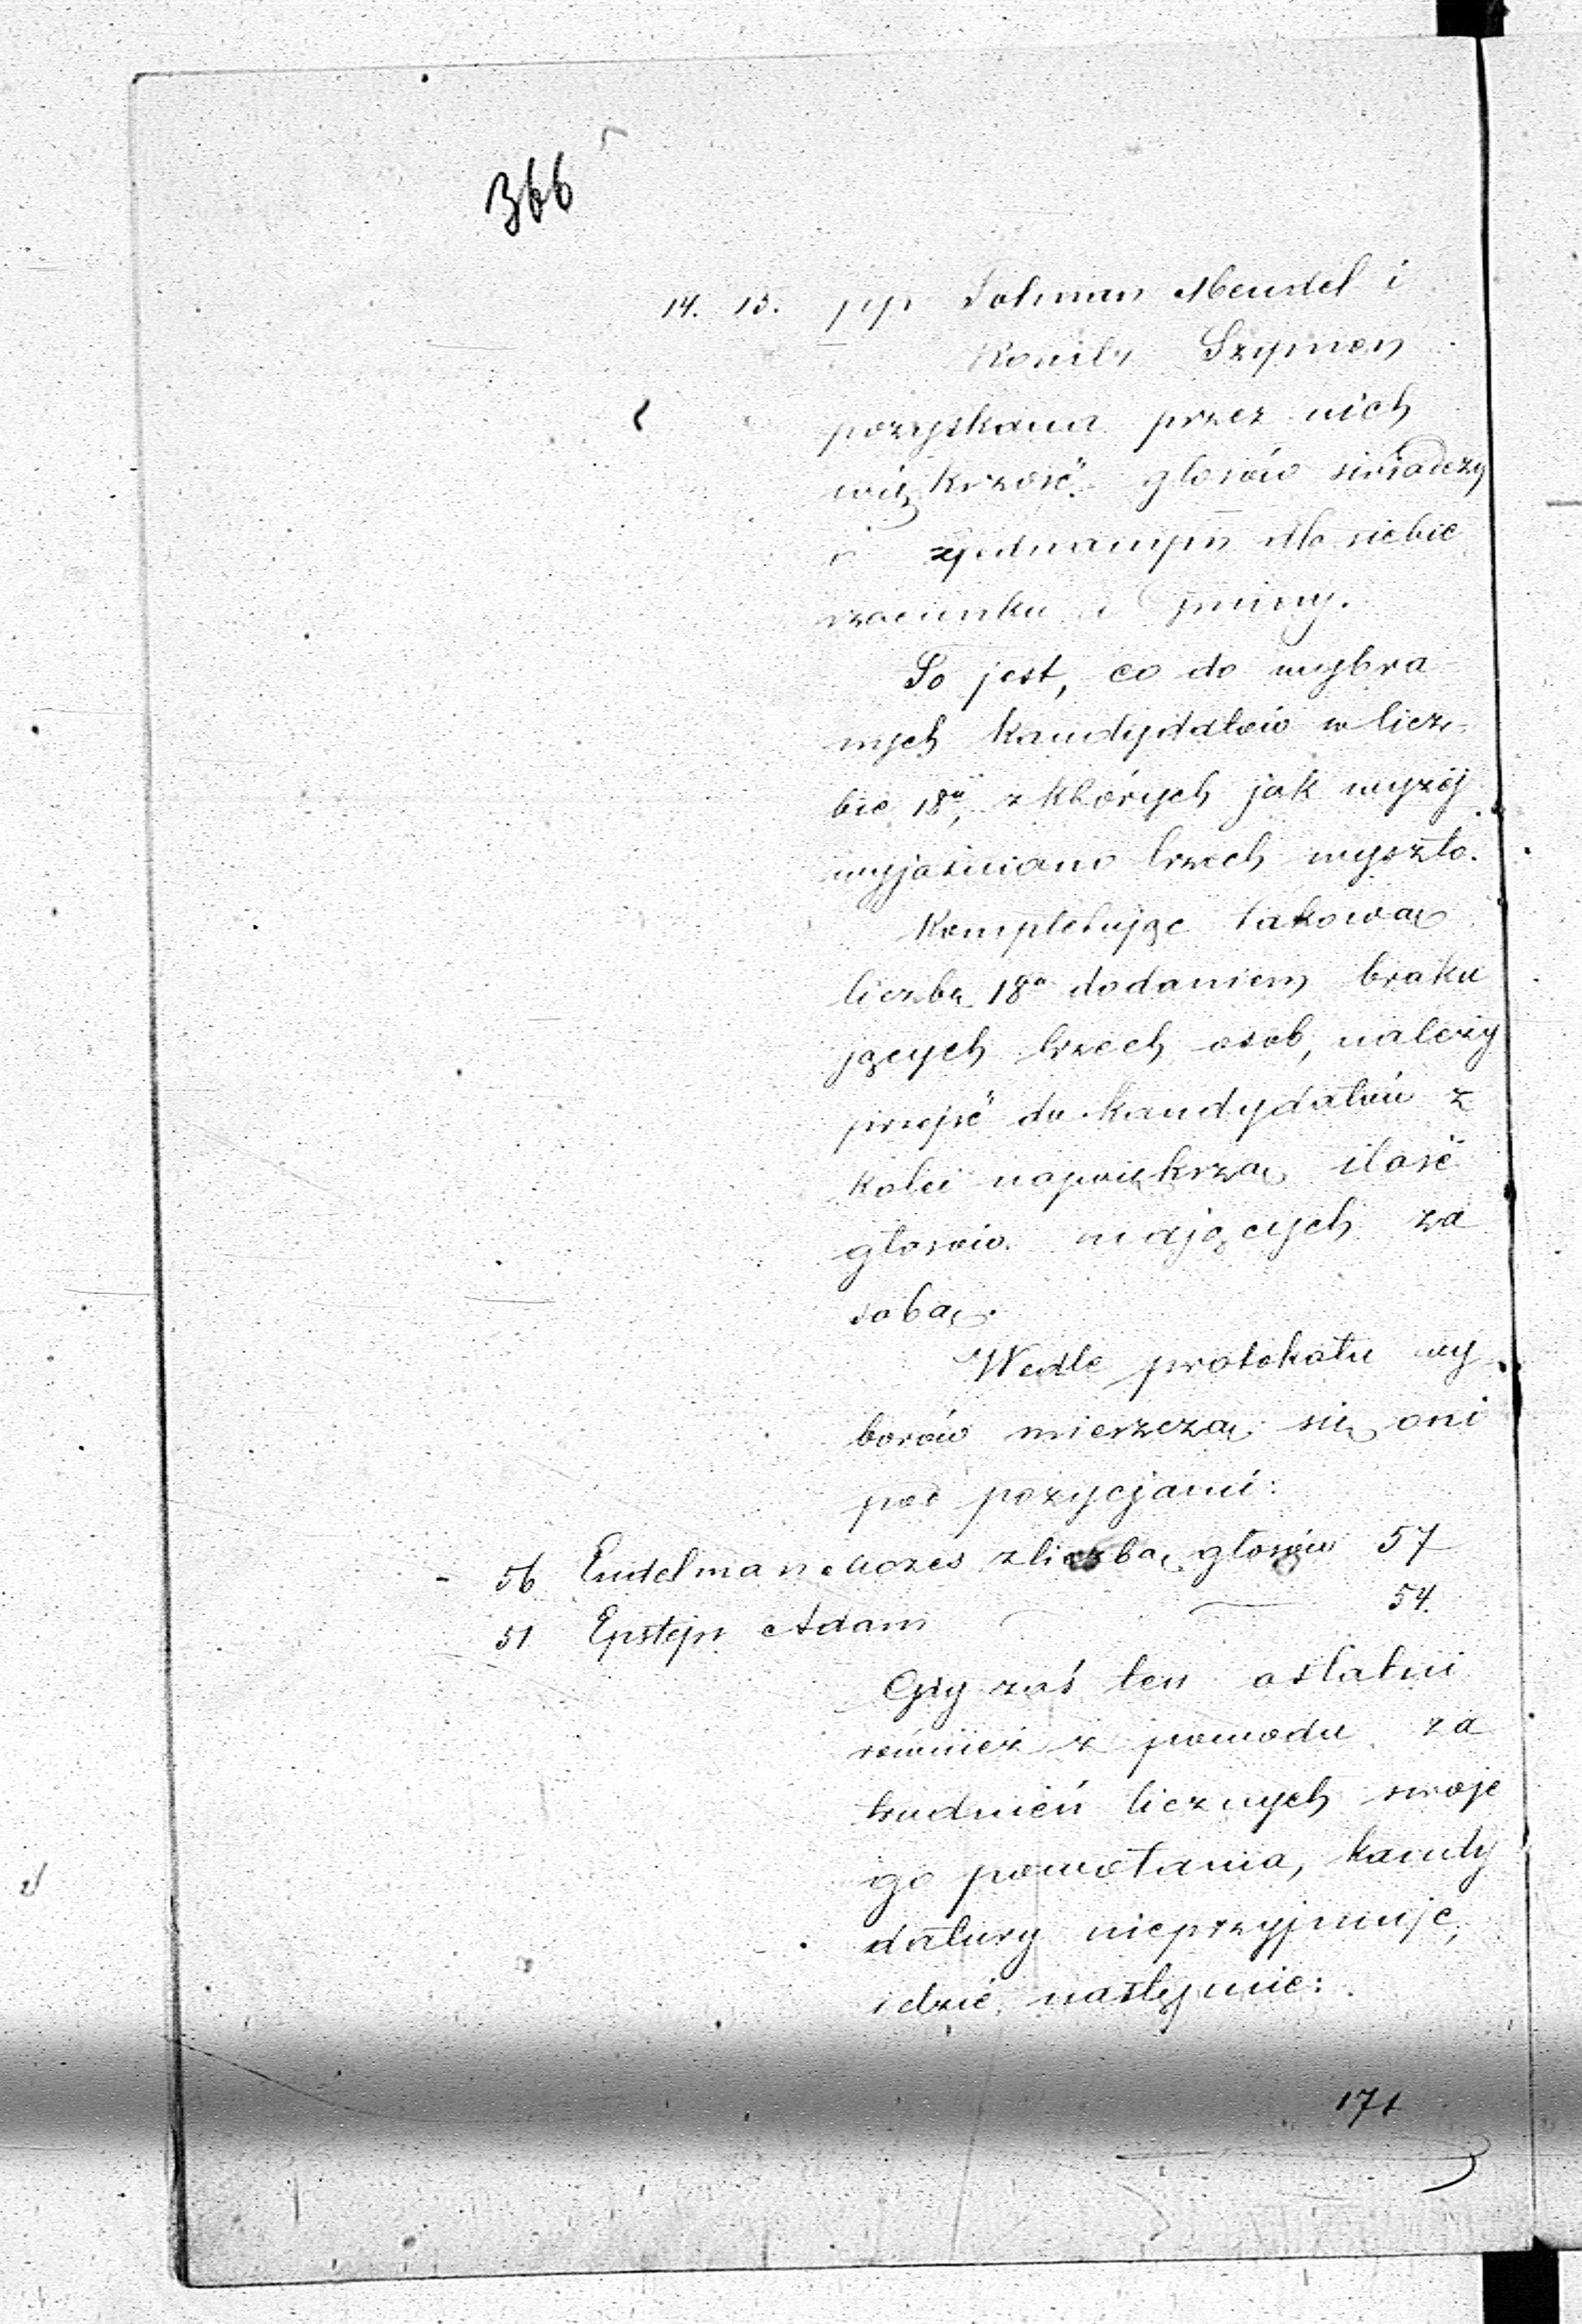 366
14. 15. pp Tohman Mendel i
Konitz Szymon
pozyskana przez nich
większość głosów świadczy
o zjednanym dla siebie
szacunku u gminy.
To jest, co do wybra
nych kandydatów w licz-
bie 18u, z których jak wyżej
wyjaśniano trzech wyszło.
Kompletując takową
liczbę 18u dodaniem braku
jących trzech osob, należy
przejść do kandydatów z
kolei największą ilość
głosów mających za
sobą.
Wedle protokołu wy
borów mieszczą się oni
pod pozycjami:
56 Endelman Mozes z liczbą głosów 57
51 Epstejn Adam — — 54.
Gdy zaś ten ostatni
również z powodu za
trudnień licznych swoje
go powołania, kandy
datury nieprzyjmuje,
idzie następnie:
171